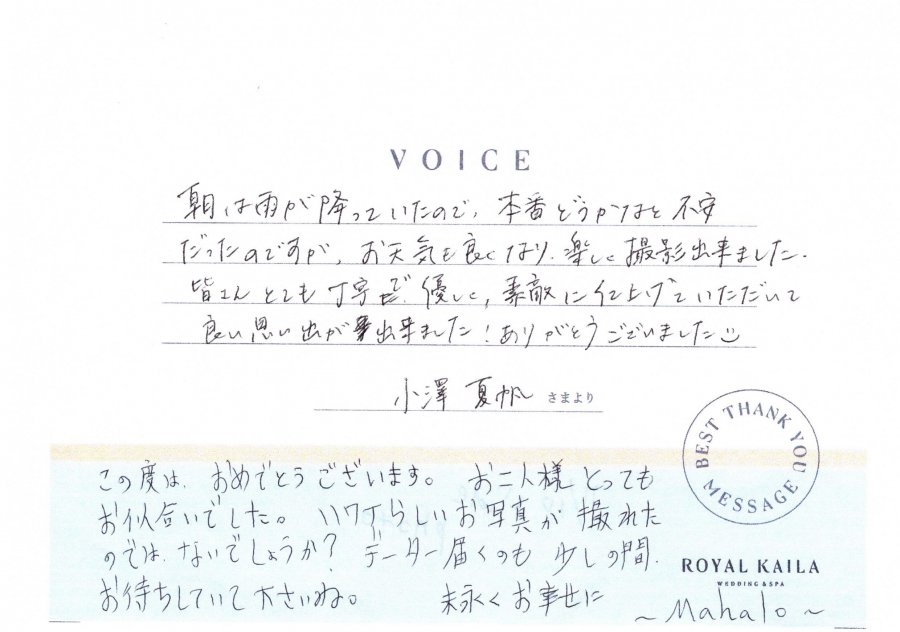 VOICE
朝は雨が降っていたので、本番どうかなと不安
だったのですが、お天気も良くなり、楽しく撮影出来ました。
皆さんとても丁寧で、優しく、素敵に仕上げていただいて
良い思い出が出来ました!ありがとうございました
小澤 夏帆 さまより
BEST THANK YOU MESSAGE
この度は、おめでとうございます。 お二人様とっても
お似合いでした。 ハワイらしいお写真が撮れた
のでは、ないでしょうか? データー届くのも少しの間、
お待ちしていて下さいね。 末永くお幸せに
ROYAL KAILA
WEDDING & SPA
~Mahalo~